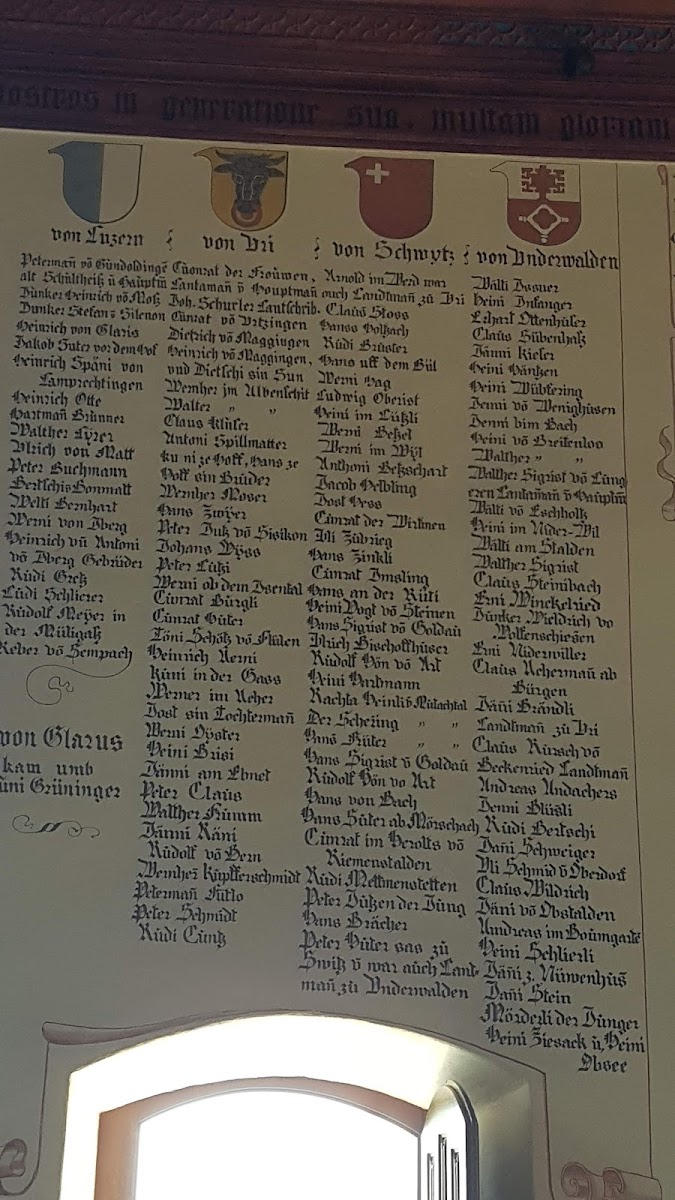 nostros in generatione sua. multam gloriam
von Luzern
Petermañ võ Gundoldingẽ
alt Schultheiß ů Haůptm̃
Junker Heinrich võ Mos
Junker Stefanͦ Silenon
Heinrich von Glaris
Jakob Suter vor dem Hof
Heinrich Späni von
Lamprechtingen
Heinrich Otte
Hartmañ Brunner
Walther Lyrer
Ulrich von Matt
Peter Buchmann
Welti Bernhart
Werni von Iberg
Heinrich vñ Antoni
võ Iberg Gebrüder
Rüdi Gretz
Lüdi Schlierer
Růdolf Meyer in
der Müligaß
Reber võ Sempach
von Glarus
kam umb
Grüninger
von Uri
Cůonrat der Frouwen,
Lantamañ ṽ Houptmañ
Joh. Schurler Lantschrib.
Cůnrat võ Utzingen
Dietrich võ Maggingen
Heinrich võ Maggingen,
vnd Dietschi sin Sun
Wernher jm Albenschit
Walter " "
Claus Kluser
Antoni Spillmatter
ku ni ze Hoff, Hans ze
Hoff sin Brüder
Wernher Moser
Hans Zwyer
Peter Butz võ Sisikon
Johans Wyss
Peter Lutzi
Werni ob dem Isental
Cůnrat Bürgli
Cůnrat Huter
Töni Schötz võ Flülen
Heinrich Aerni
küni in der Gass
Werner im Acher
Jost sin Tochtermañ
Werni Oyster
Heini Brisi
Jänni am Ebnet
Peter Claus
Walther Frumm
Jänni Räni
Růdolf võ Bern
Wernheȓ Kůpfferschmidt
Petermañ Futlo
Peter Schmidt
Rüdi Cůntz
von Schwytz
Arnold im Werd war
ouch Landtmañ zů Uri
Claus Stoss
Hanss Holzach
Rüdi Brüster
Hans uff dem Bül
Werni Hag
Ludwig Oberist
Heini im Lützli
Werni Betzel
Werni im Wyl
Anthoni Betzschart
Jacob Helbling
Jost Hess
Cůnrat der Wirtinen
Ůli Zübrieg
Hans Zinkli
Cůnrat Imsling
Hans an der Rüti
Heini Vogt võ Steinen
Hans Sigrist võ Goldaů
Ulrich Bischoffhůser
Růdolf Hön võ Art
Heini Hartmann
Rachta Heinli võ Můtachtal
Der Scheẞing " "
Hans Früter " "
Hans Sigrist ṽ Goldaů
Růdolf Hön vo Art
Hans von Bach
Hans Sůter ab Mörschach
Cůnrat im Herolts võ
Riemenstalden
Rüdi Mettmenstetten
Peter Jůtzen der Jüng
Hans Brächer
Peter Hůter sas zů
Switz ṽ war auch Lant-
mañ zů Underwalden
von Underwalden
Wälti Dusner
Heini Infanger
Echart Ottenhůser
Claůs Sübenhatz
Jänni kieser
Heini Häntzen
Heini Wübfering
Jenni võ Wenighůsen
Jenni bim Bach
Heini võ Breitenloo
Walther " "
Walther Sigrist võ Lüng
eren Lantam̃an ṽ Haůptm̃
Wälti võ Eschholtz
Heini im Nider-Wil
Wälti am Stalden
Walther Sigrist
Claůs Steinibach
Erni Winckelried
Jůnker Wieldrich vo
Wolfenschießen
Erni Niderwiller
Claůs Achermañ ab
Bürgen
Jäñi Brändli
Landtmañ zů Uri
Claůs Rürsch võ
Beckenried Landtmañ
Andreas Andachers
Jenni Blüsli
Rüdi Bertschi
Jañi Schweiger
Uli Schmid ṽ Oberdorf
Claůs Wildrich
Jäni võ Obstalden
Andreas im Boůmgartẽ
Heini Schlierli
Jäñi z. Nüwenhůs
Jañi Stein
Mörderli der Jünger
Heini Ziesack ů, Heini
Obsee